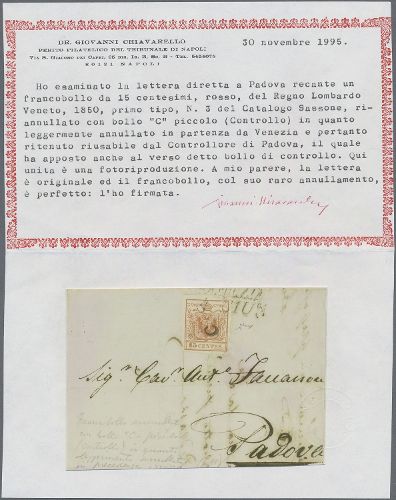 DR. GIOVANNI CHIAVARELLO
PERITO FILATELICO DEL TRIBUNALE DI NAPOLI
80121 NAPOLI
30 novembre 1995.
Ho esaminato la lettera diretta a Padova recante un
francobollo da 15 centesimi, rosso, del Regno Lombardo
Veneto, 1850, primo tipo, N. 3 del Catalogo Sassone, ri-
annullato con bollo "C" piccolo (Controllo) in quanto
leggermente annullato in partenza da Venezia e pertanto
ritenuto riusabile dal Controllore di Padova, il quale
ha apposto anche al verso detto bollo di controllo. Qui
unita è una fotoriproduzione. A mio parere, la lettera
è originale ed il francobollo, col suo raro annullamento,
è perfetto: l'ho firmata.
C
15 CENTES.
Padova
Francobollo annullato
con bollo "C" piccolo
(controllo) in quanto
leggermente annullato
in precedenza